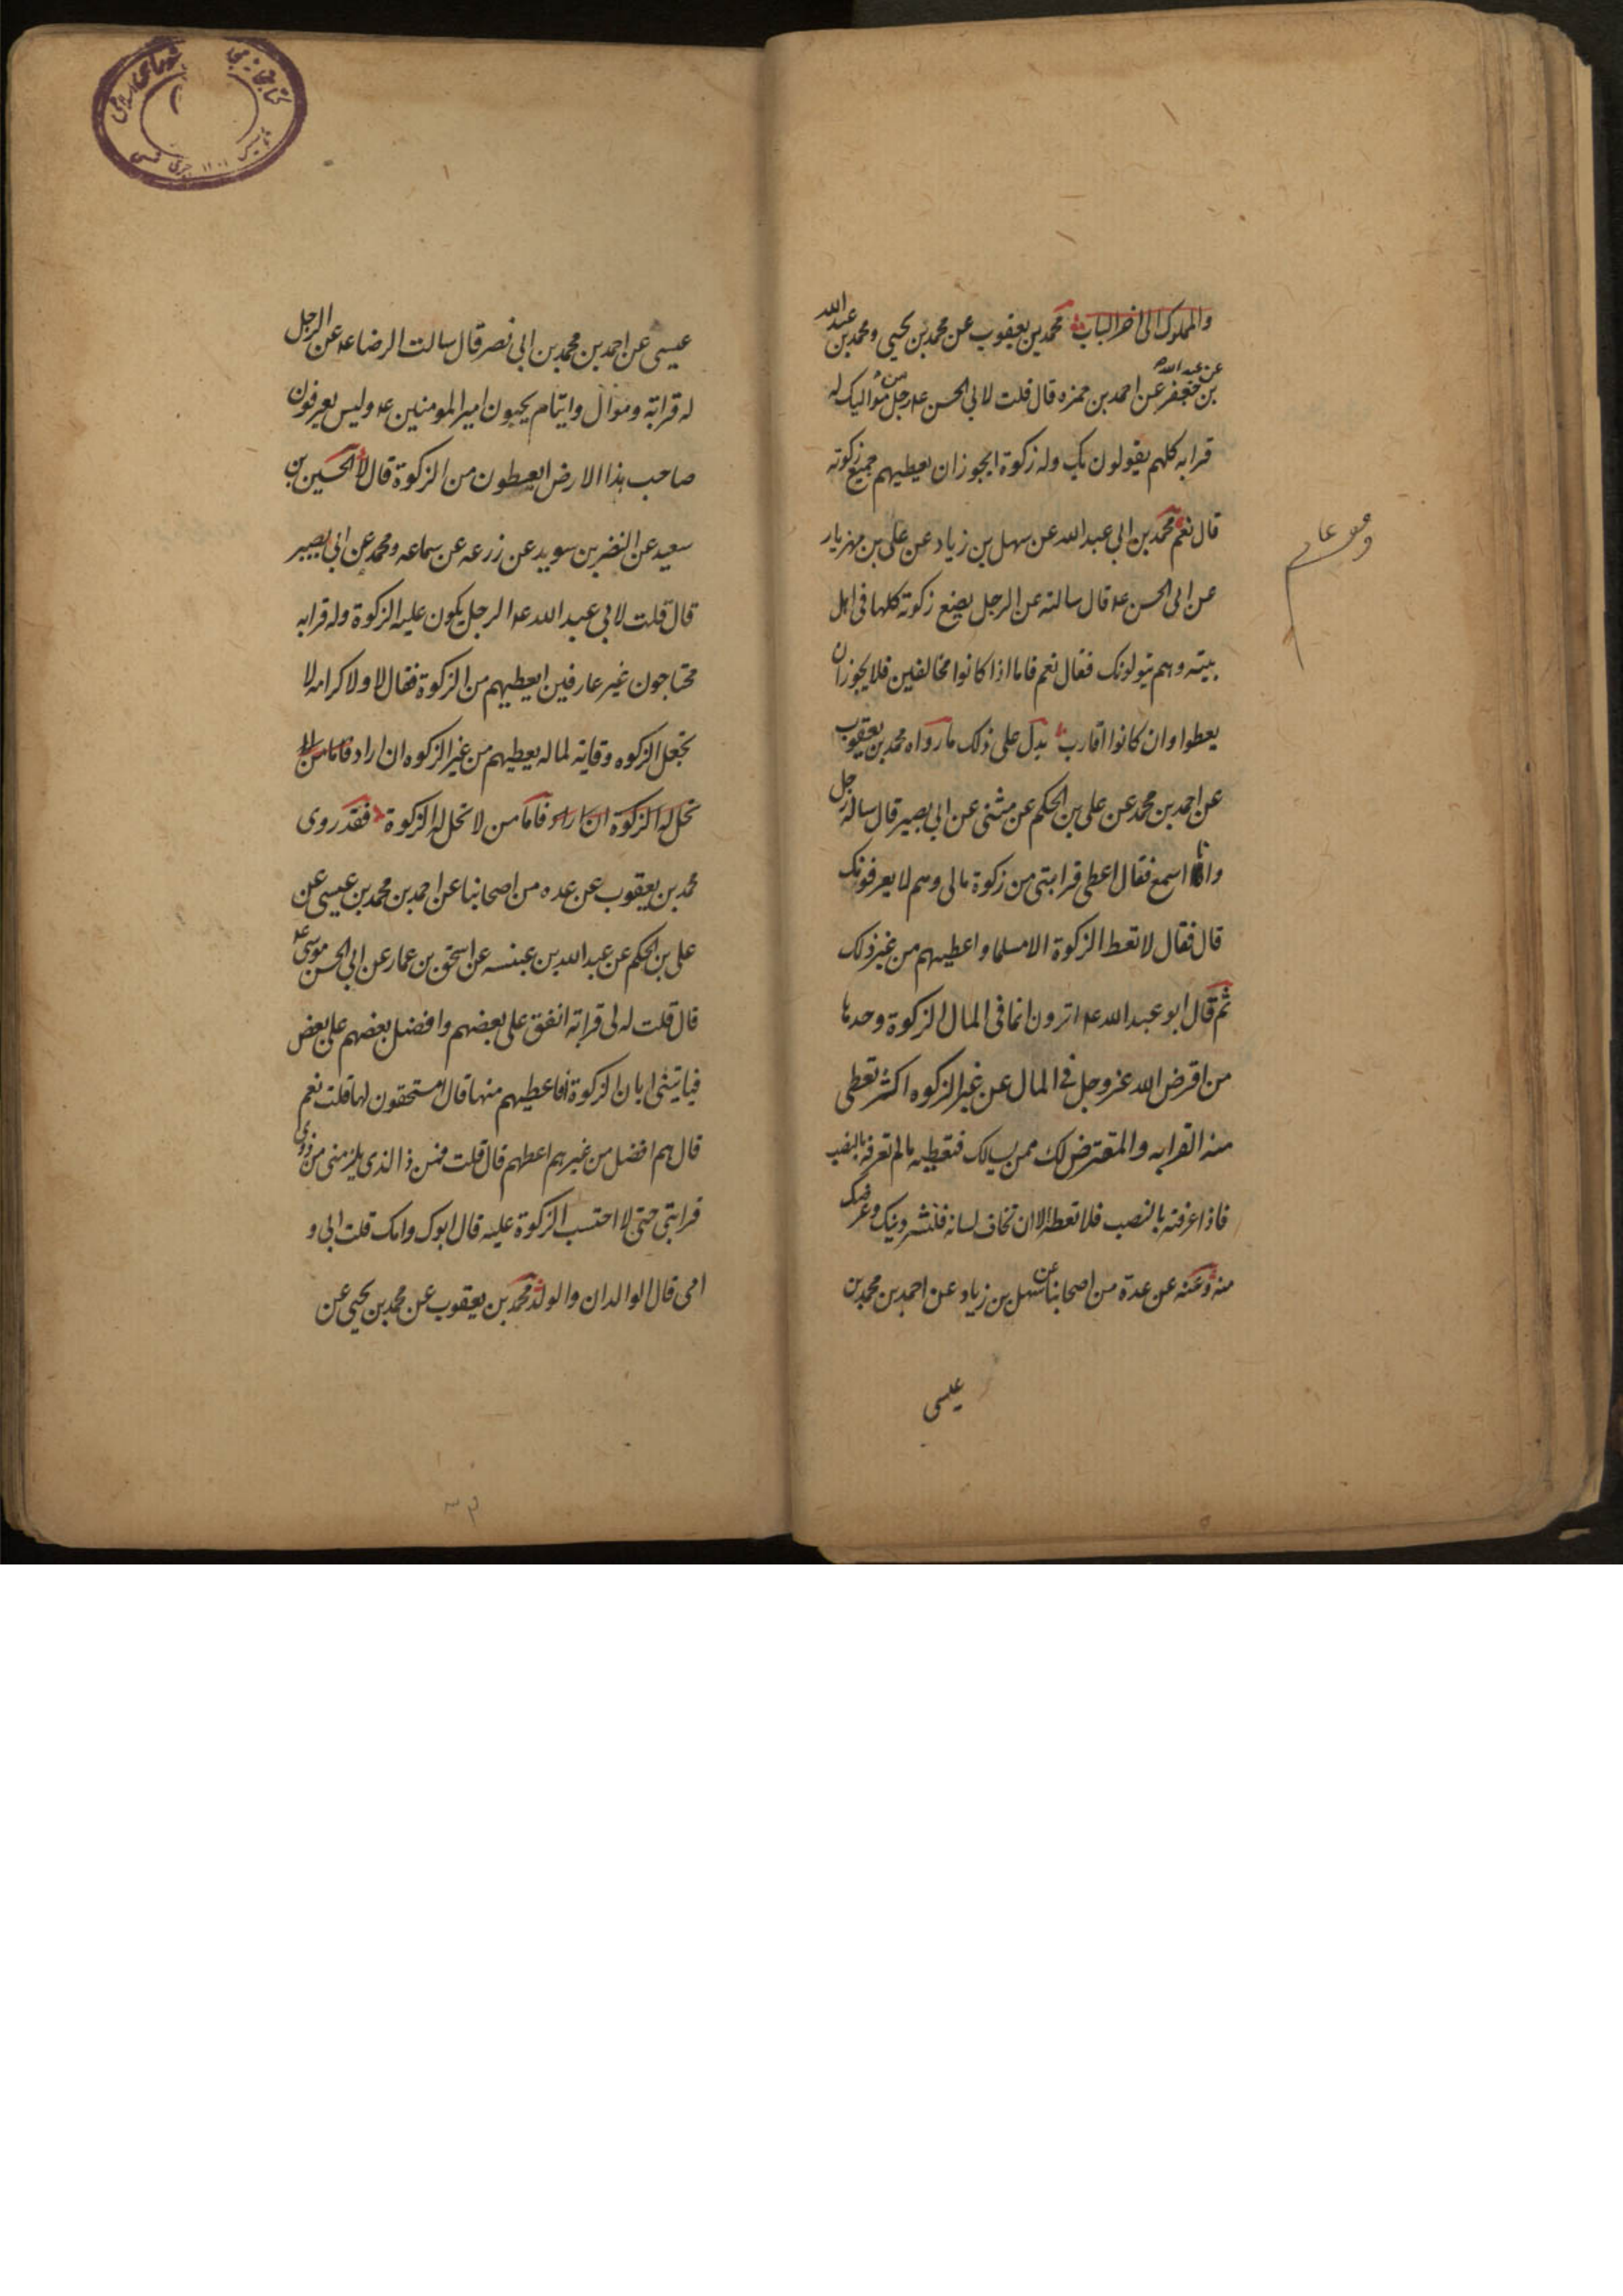 والمملوك الى اخر الباب محمد بن يعقوب عن محمد بن يحيى ومحمد بن عبد الله
عن عبد الله
بن جعفر عن احمد بن حمزه قال قلت لابي الحسن عه رجل من مواليك له
قرابه كلهم يقولون بك وله زكوة ايجوز ان يعطيهم جميع زكوته
قال نعم محمد بن ابي عبد الله عن سهل بن زياد عن علي بن مهزيار
عن ابي الحسن عه قال سالته عن الرجل يضع زكوته كلها في اهل
بيته وهم يتولونك فقال نعم فاما اذا كانوا مخالفين فلا يجوز ان
يعطوا وان كانوا اقارب يدل على ذلك ما رواه محمد بن يعقوب
عن احمد بن محمد عن علي بن الحكم عن مثنى عن ابي بصير قال ساله رجل
وانا اسمع فقال اعطي قرابتي من زكوة مالي وهم لا يعرفونك
قال فقال لا تعط الزكوة الا مسلما واعطيهم من غير ذلك
ثم قال ابو عبد الله عه اترون انما في المال الزكوة وحدها
من اقرض الله عز وجل في المال عن غير الزكوه اكثر تعطي
منه القرابه والمعترض لك ممن يسالك فتعطيه ما لم تعرفه بالنصب
فاذا عرفته بالنصب فلا تعطه الا ان تخاف لسانه فتشتر دينك وعرضك
منه وعنه عن عدة من اصحابنا عن سهل بن زياد عن احمد بن محمد بن
عيسى
عيسى عن احمد بن محمد بن ابي نصر قال سالت الرضا عه عن الرجل
له قرابته وموال وايتام يحبون امير المومنين عه وليس يعرفون
صاحب هذا الارض ايعطون من الزكوة قال لا الحسين بن
سعيد عن النضر بن سويد عن زرعه عن سماعه ومحمد عن ابي بصير
قال قلت لابي عبد الله عه الرجل يكون عليه الزكوة وله قرابه
محتاجون غير عارفين ايعطيهم من الزكوة فقال لا ولا كرامه لا
تجعل الزكوه وقايه لماله يعطيهم من غير الزكوه ان اراد فاما من لا
تحل له الزكوة ان اراد فاما من لا تحل له الزكوة فقد روى
محمد بن يعقوب عن عده من اصحابنا عن احمد بن محمد بن عيسى عن
علي بن الحكم عن عبد الله بن عبنسه عن اسحق بن عمار عن ابي الحسن موسى عه
قال قلت له لى قرابة انفق على بعضهم وافضل بعضهم على بعض
فياتيني ابان الزكوة افاعطيهم منها قال امستحقون لها قلت نعم
قال هم افضل من غيرهم اعطهم قال قلت فمن ذا الذي يلزمني من ذوي
قرابتي حتى لا احتسب الزكوة عليه قال ابوك وامك قلت ابي و
امي قال الوالدان والولد محمد بن يعقوب عن محمد بن يحيى عن